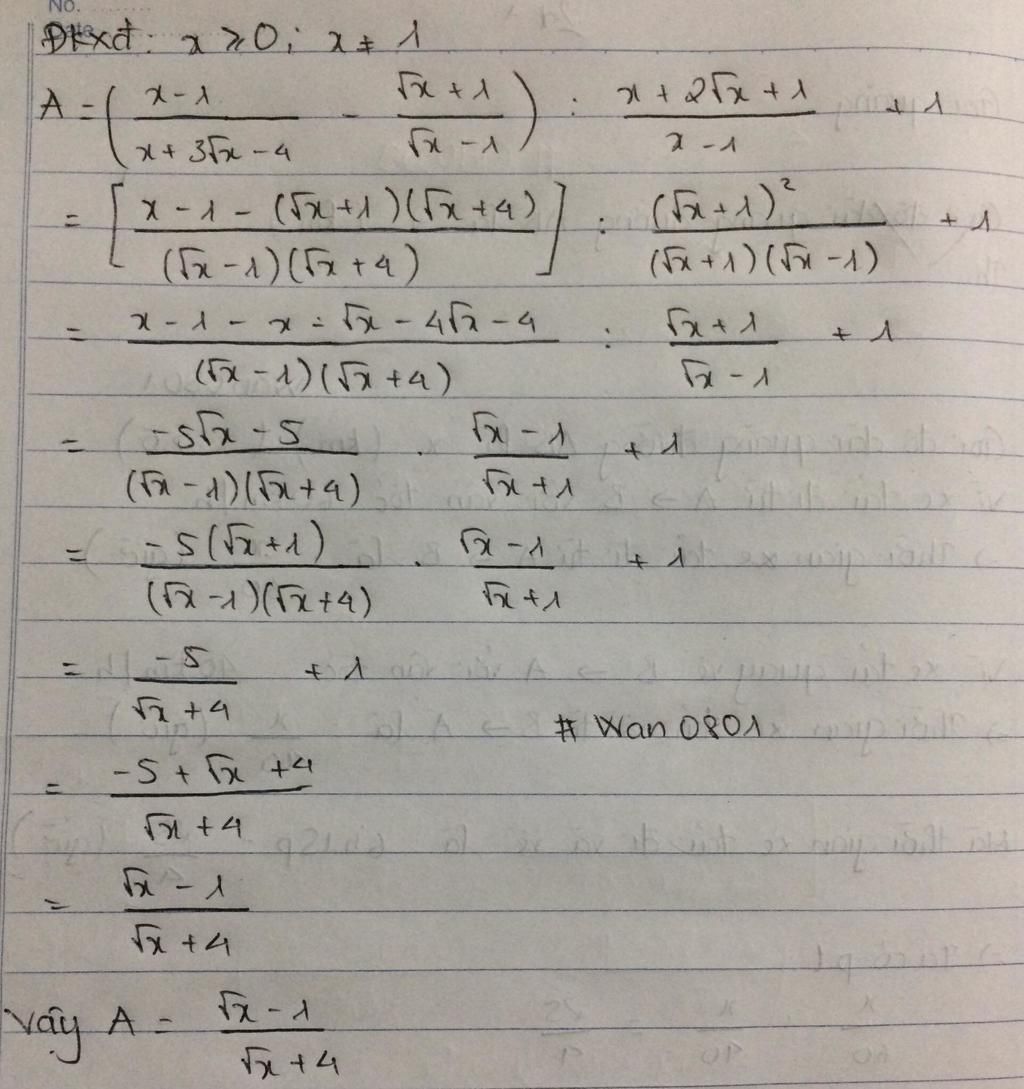 No.
Đkxđ: x ≥ 0; x ≠ 1
A = ( (x - 1)/(x + 3√x - 4) - (√x + 1)/(√x - 1) ) : (x + 2√x + 1)/(x - 1) + 1
= [ (x - 1 - (√x + 1)(√x + 4))/((√x - 1)(√x + 4)) ] : (√x + 1)²/((√x + 1)(√x - 1)) + 1
= (x - 1 - x - √x - 4√x - 4)/((√x - 1)(√x + 4)) : (√x + 1)/(√x - 1) + 1
= (-5√x - 5)/((√x - 1)(√x + 4)) . (√x - 1)/(√x + 1) + 1
= (-5(√x + 1))/((√x - 1)(√x + 4)) . (√x - 1)/(√x + 1) + 1
= (-5)/(√x + 4) + 1
# Wan 0801
= (-5 + √x + 4)/(√x + 4)
= (√x - 1)/(√x + 4)
Vậy A = (√x - 1)/(√x + 4)